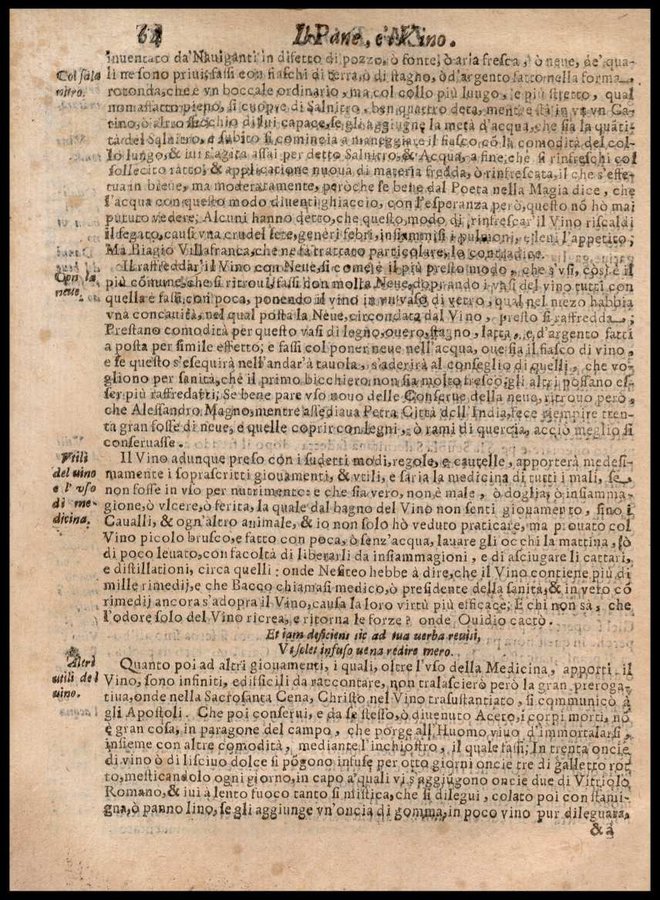 64 Il Pane, e'l Vino.
inuentato da' Nauiganti in difetto di pozzo, ò fonte, ò aria fresca, ò neue, de' qua-
Col sal
nitro.
li ne sono priui; fassi con fiaschi di terra, ò di stagno, ò d'argento fatto nella forma
rotonda, che è vn boccale ordinario, ma col collo più luugo, e più stretto, qual
non affatto pieno, si cuopre di Salnitro, ben quattro deta, mentre stà in vn Ca-
tino, ò altro secchio di lui capace, se gli aggiugne la metà d'acqua, che sia la quãti-
tà del Salnitro, e subito si comincia a maneggiare il fiasco cõ la comodità del col-
lo lungo, & iui s'agita assai per detto Salnitro, & Acqua, a fine, che si rinfreschi col
sollecito ratto, & applicatione nuoua di materia fredda, ò rinfrescata, il che s'effet-
tua in breue, ma moderatamente, peròche se bene dal Poeta nella Magia dice, che
l'acqua con questo modo diuenti ghiaccio, con l'esperanza però, questo nõ hò mai
pututo vedere; Alcuni hanno detto, che questo modo di rinfrescar'il Vino riscaldi
il fegato, causi vna crudel sete, generi febri, infiammi i pulmoni, e sleni l'appetito;
Ma Biagio Villafranca, che ne fà trattato particolare, lo contradice.
Con la
neue.
Il raffreddar'il Vino con Neue, si come è il più presto modo, che s'vsi, così è il
più cómune, che si ritroui: fassi con molta Neue, doprando i vasi del vino tutti con
quella e fassi con poca, ponendo il vino in vn vaso di vetro, qual nel mezo habbia
vna concauità, nel qual posta la Neue, circondata dal Vino, presto si raffredda;
Prestano comodità per questo vasi di legno, ouero, stagno, latta, e d'argento fatti
a posta per simile effetto; e fassi col poner neue nell'acqua, oue sia il fiasco di vino,
e se questo s'esequirà nell'andar'à tauola, s'aderirà al conseglio di quelli, che vo-
gliono per sanità, che il primo bicchiero non sia molto fresco, gli altri possano es-
ser più raffredatti; Se bene pare vso nouo delle Conserue della neue, ritrouo però,
che Alessandro Magno, mentre assediaua Petra Città dell'India, fece riempire tren-
ta gran fosse di neue, e quelle coprir con legni, ò rami di quercia, acciò meglio si
conseruasse.
Vtili
del uino
e l'vso
di me-
dicina.
Il Vino adunque preso con i sudetti modi, regole, e cautelle, apporterà medesi-
mamente i soprascritti giouamenti, & vtili, e saria la medicina di tutti i mali, se
non fosse in vso per nutrimento: e che sia vero, non è male, ò doglia, ò infiamma-
gione, ò vlcere, ò ferita, la quale dal bagno del Vino non senti giouamento, sino i
Caualli, & ogn'altro animale, & io non solo hò veduto praticare, ma prouato col
Vino picolo brusco, e fatto con poca, ò senz'acqua, lauare gli occhi la mattina, sò
di poco leuato, con facoltà di liberarli da infiammagioni, e di asciugare li cattari,
e distillationi, circa quelli: onde Nesiteo hebbe à dire, che il Vino contiene più di
mille rimedij, e che Bacco chiamasi medico, ò presidente della sanità, & in vero cõ
rimedij ancora s'adopra il Vino, causa la loro virtù più efficace; E chi non sà, che
l'odore solo del Vino ricrea, e ritorna le forze? onde Ouidio cactò.
Et iam deficiens sic ad tua uerba reuixi,
Vt solet infuso uena redire mero.
Altri
utili del
uino.
Quanto poi ad altri giouamenti, i quali, oltre l'vso della Medicina, apporti il
Vino, sono infiniti, e difficili da raccontare, non tralascierò però la gran preroga-
tiua, onde nella Sacrosanta Cena, Christo nel Vino trasustantiato, si communicò à
gli Apostoli. Che poi conserui, e da se stesso, ò diuenuto Aceto, i corpi morti, nõ
è gran cosa, in paragone del campo, che porge all'Huomo viuo d'immortalarsi,
insieme con altre comodità, mediante l'inchiostro, il quale fassi; In trenta oncie
di vino ò di lisciuo dolce si põgono infuse per otto giorni oncie tre di galletto rot-
to, mesticandolo ogni giorno, in capo a' quali vi s'aggiugono oncie due di Vitriolo
Romano, & iui a lento fuoco tanto si mistica, che si dilegui, colato poi con stami-
gna, ò panno lino, se gli aggiunge vn'oncia di gomma, in poco vino pur dileguara,
& à